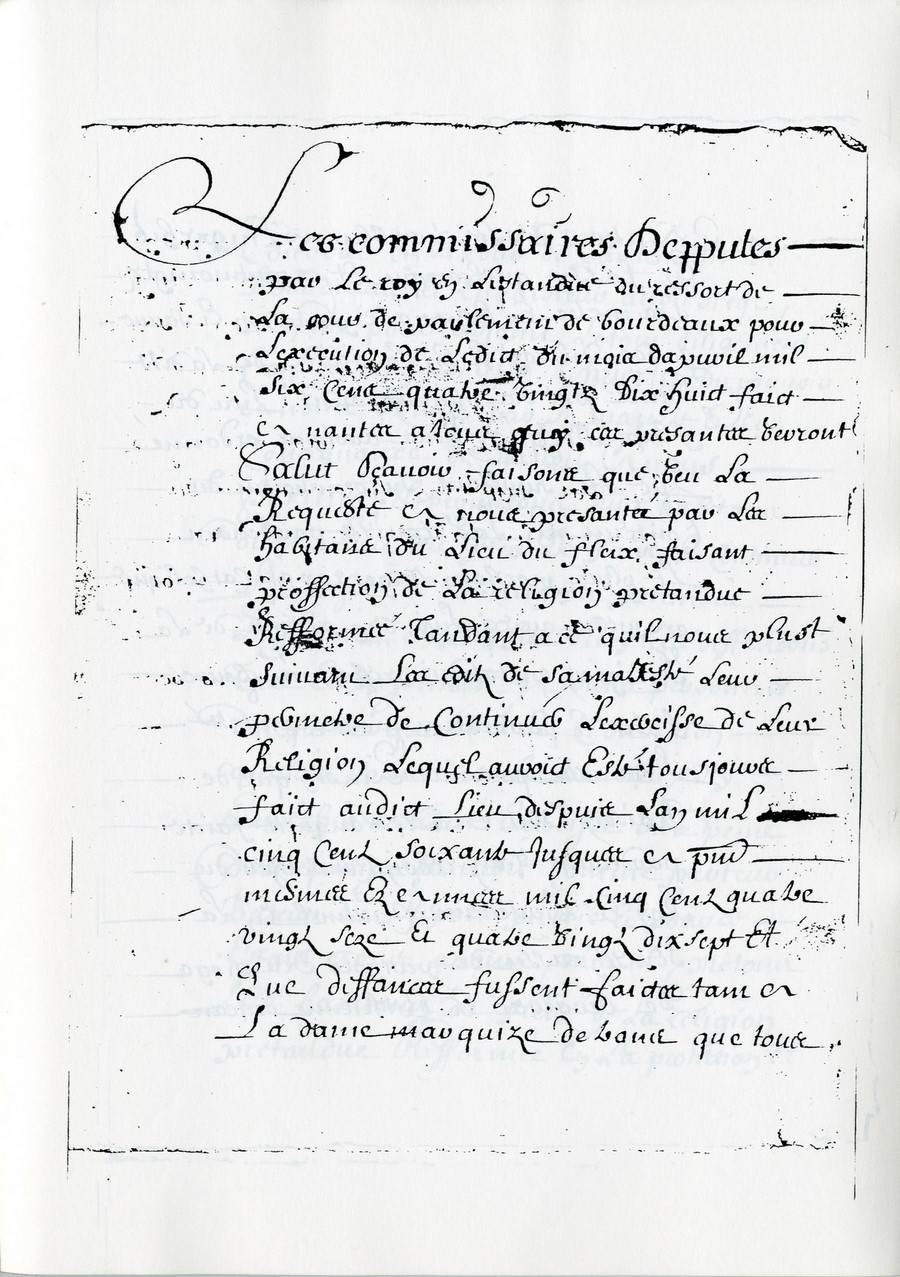 Les commissaires Depputes
par Le roy en Lestandue du ressort de
La cour de parlement de bourdeaux pour
Lexecution de Ledict du mois dapvril mil
six Cens quatre vingtz Dix huict faict
a nantes a tous ceux qui ces presantes verront
Salut Sçavoir faisons que veu La
Requeste a nous presantée par Les
habitans du Lieu du fleix faisant
proffection de La religion pretandue
Refformée Tandant a ce quil nous plust
suivant Les editz de sa maiesté Leur
permetre de Continuer Lexercisse de Leur
Religion Lequel auroict Esté tousjours
faict audict Lieu despuis Lan mil
cinq Centz soixante Jusques a pnt
mesmes Ez années mil cinq Centz quatre
vingtz seze Et quatre vingtz dix sept Et
Que deffances fussent faictes tant a
La dame marquize de trans que tous